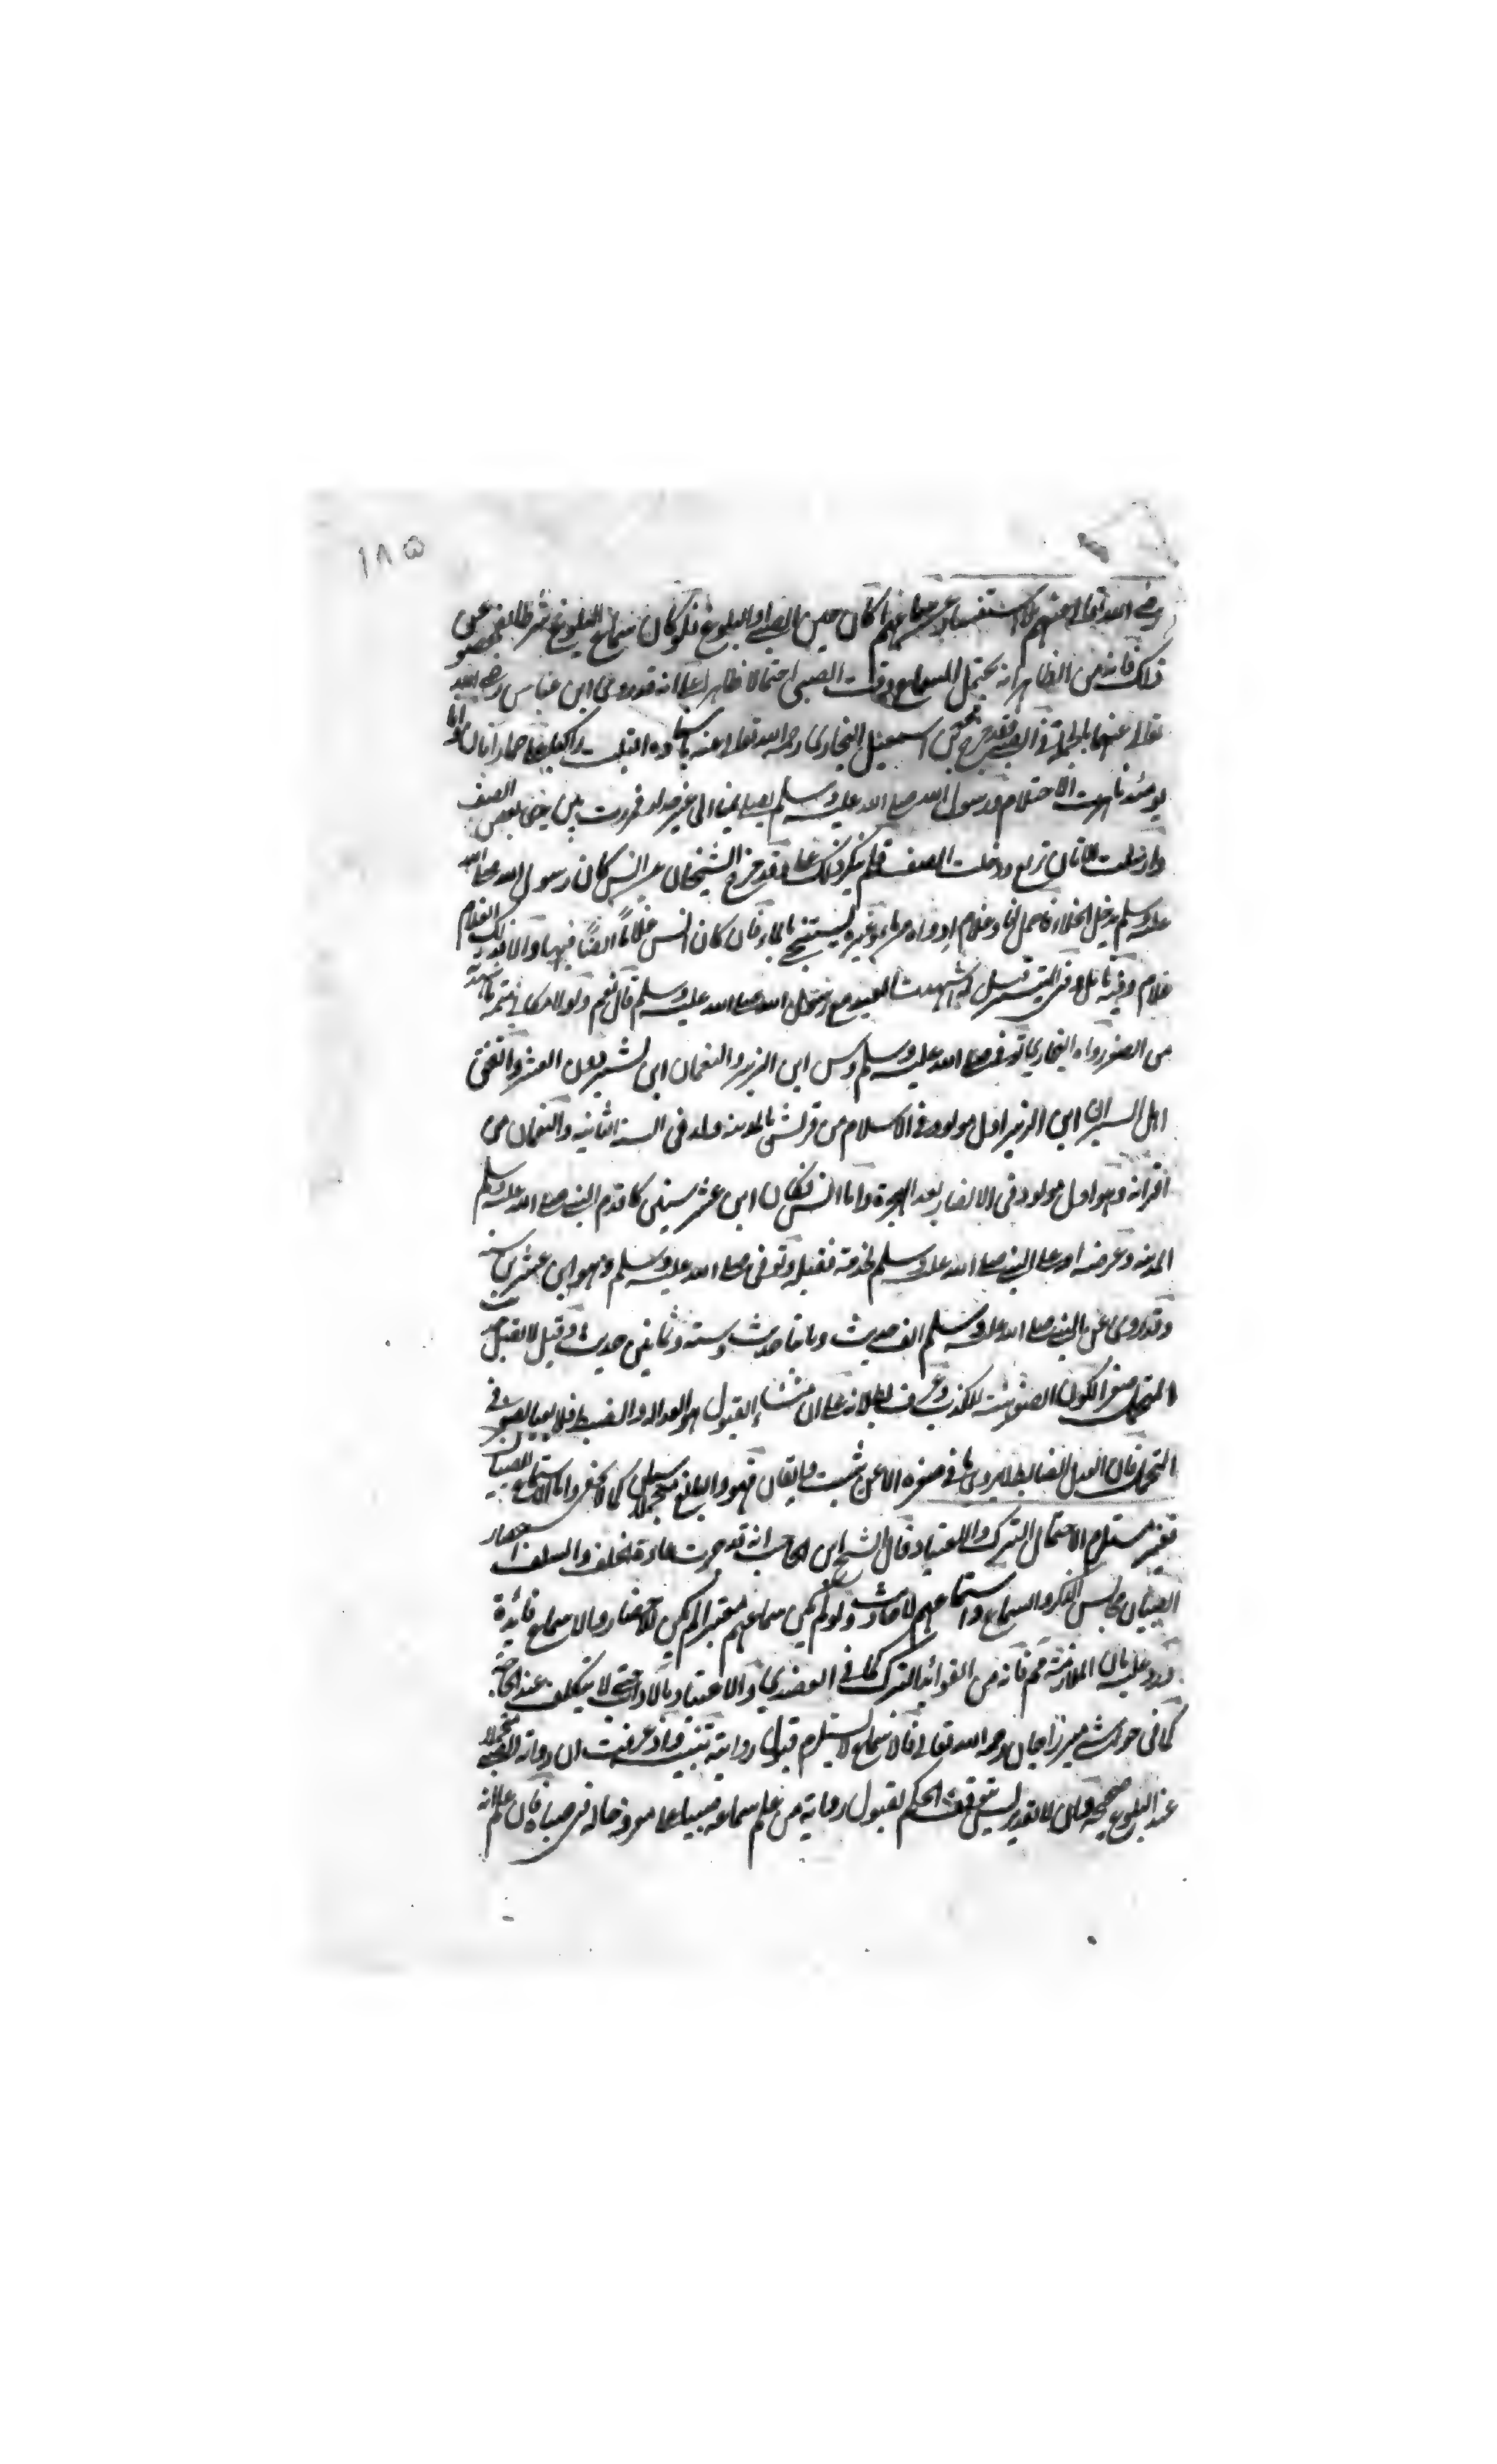 ١٨٥
رضي الله تعالى عنهم بلا استفسار عن سماعهم أكان حين الصبا أو البلوغ فلو كان سماع البلوغ شرطا
ذلك فإنه من الظاهر أنه يحتمل السماع وقت الصبى احتمالا ظاهرا على أنه قد روى ابن عباس رضي الله
تعالى عنهما بالجملة في الصبى فقد خرج محمد بن اسمعيل البخاري رحمه الله تعالى عنه أقبلت راكبا على حمار أتان وأنا
يومئذ ناهزت الاحتلام ورسول الله صلى الله عليه وسلم يصلي بمنى الى غير جدار فمررت بين يدي بعض الصف
وارسلت الاتان ترتع ودخلت الصف فلم ينكر ذلك علي وقد خرج الشيخان عن انس كان رسول الله صلى الله
عليه وسلم يدخل الخلاء فاحمل انا وغلام اداوة من ماء وغيره يستنجي بالماء فان كان انس غلاما ايضا فبها والا فذلك الغلام
غلام وفيه تامل وفي التيسير قيل له اشهدت العيد مع رسول الله صلى الله عليه وسلم قال نعم ولولا مكاني منه ما شهدته
من الصغر رواه البخاري توفي صلى الله عليه وسلم وسن ابن الزبير والنعمان ابن بشير دون العشر واتفق
اهل السير ان ابن الزبير اول مولود في الاسلام من قريش بالمدينة ولد في السنة الثانية والنعمان من
اقرانه وهو اول مولود في الانصار بعد الهجرة واما انس فكان ابن عشر سنين كما قدم النبي صلى الله عليه وسلم
المدينة وعرضته امه على النبي صلى الله عليه وسلم لخدمته فقبله وتوفي صلى الله عليه وسلم وهو ابن عشرين سنة
وقد روى عن النبي صلى الله عليه وسلم الف حديث ومائتا حديث وستة وثمانين حديثا وقيل لا يقبل
المتحمل صغيرا لكون الصغر مئنة للكذب وعرف بطلانه على ان منشاء القبول هو العدالة والضبط فلا يعبا بالصغر في
التحمل فان العدل الضابط لا يروي ما في صغره الا عن تثبت وايقان فهو والبالغ متحملا سيان كما لا يخفى واما اسماع الصبيان
فغير مستلزم لاحتمال التبرك والاعتياد قال الشيخ ابن الحاجب انه قد جرت عادة الخلف والسلف احضار
الصبيان مجالس الذكر والسماع واستماعهم الاحاديث ولو لم يكن سماعهم معتبرا لم يكن للاحضار والاسماع فائدة
ورد عليه بان الملازمة مم فانه من الفوائد التبرك كما في العضدي والاعتياد بالاداب حتى لا يتكلف عند الحاجة
كما في حواشي ميرزا جان رحمه الله تعالى فالاسماع لا يستلزم قبول روايته تنبيه واذ عرفت ان رواية المتحمل
عند البلوغ صحيحة لم يتوقف الحكم لقبول رواية من علم سماعه صبيا على معرفة حاله في صباه فان علم انه